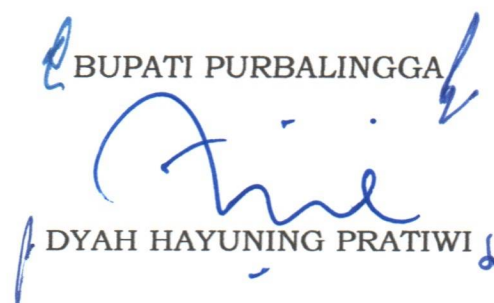 BUPATI PURBALINGGA
DYAH HAYUNING PRATIWI